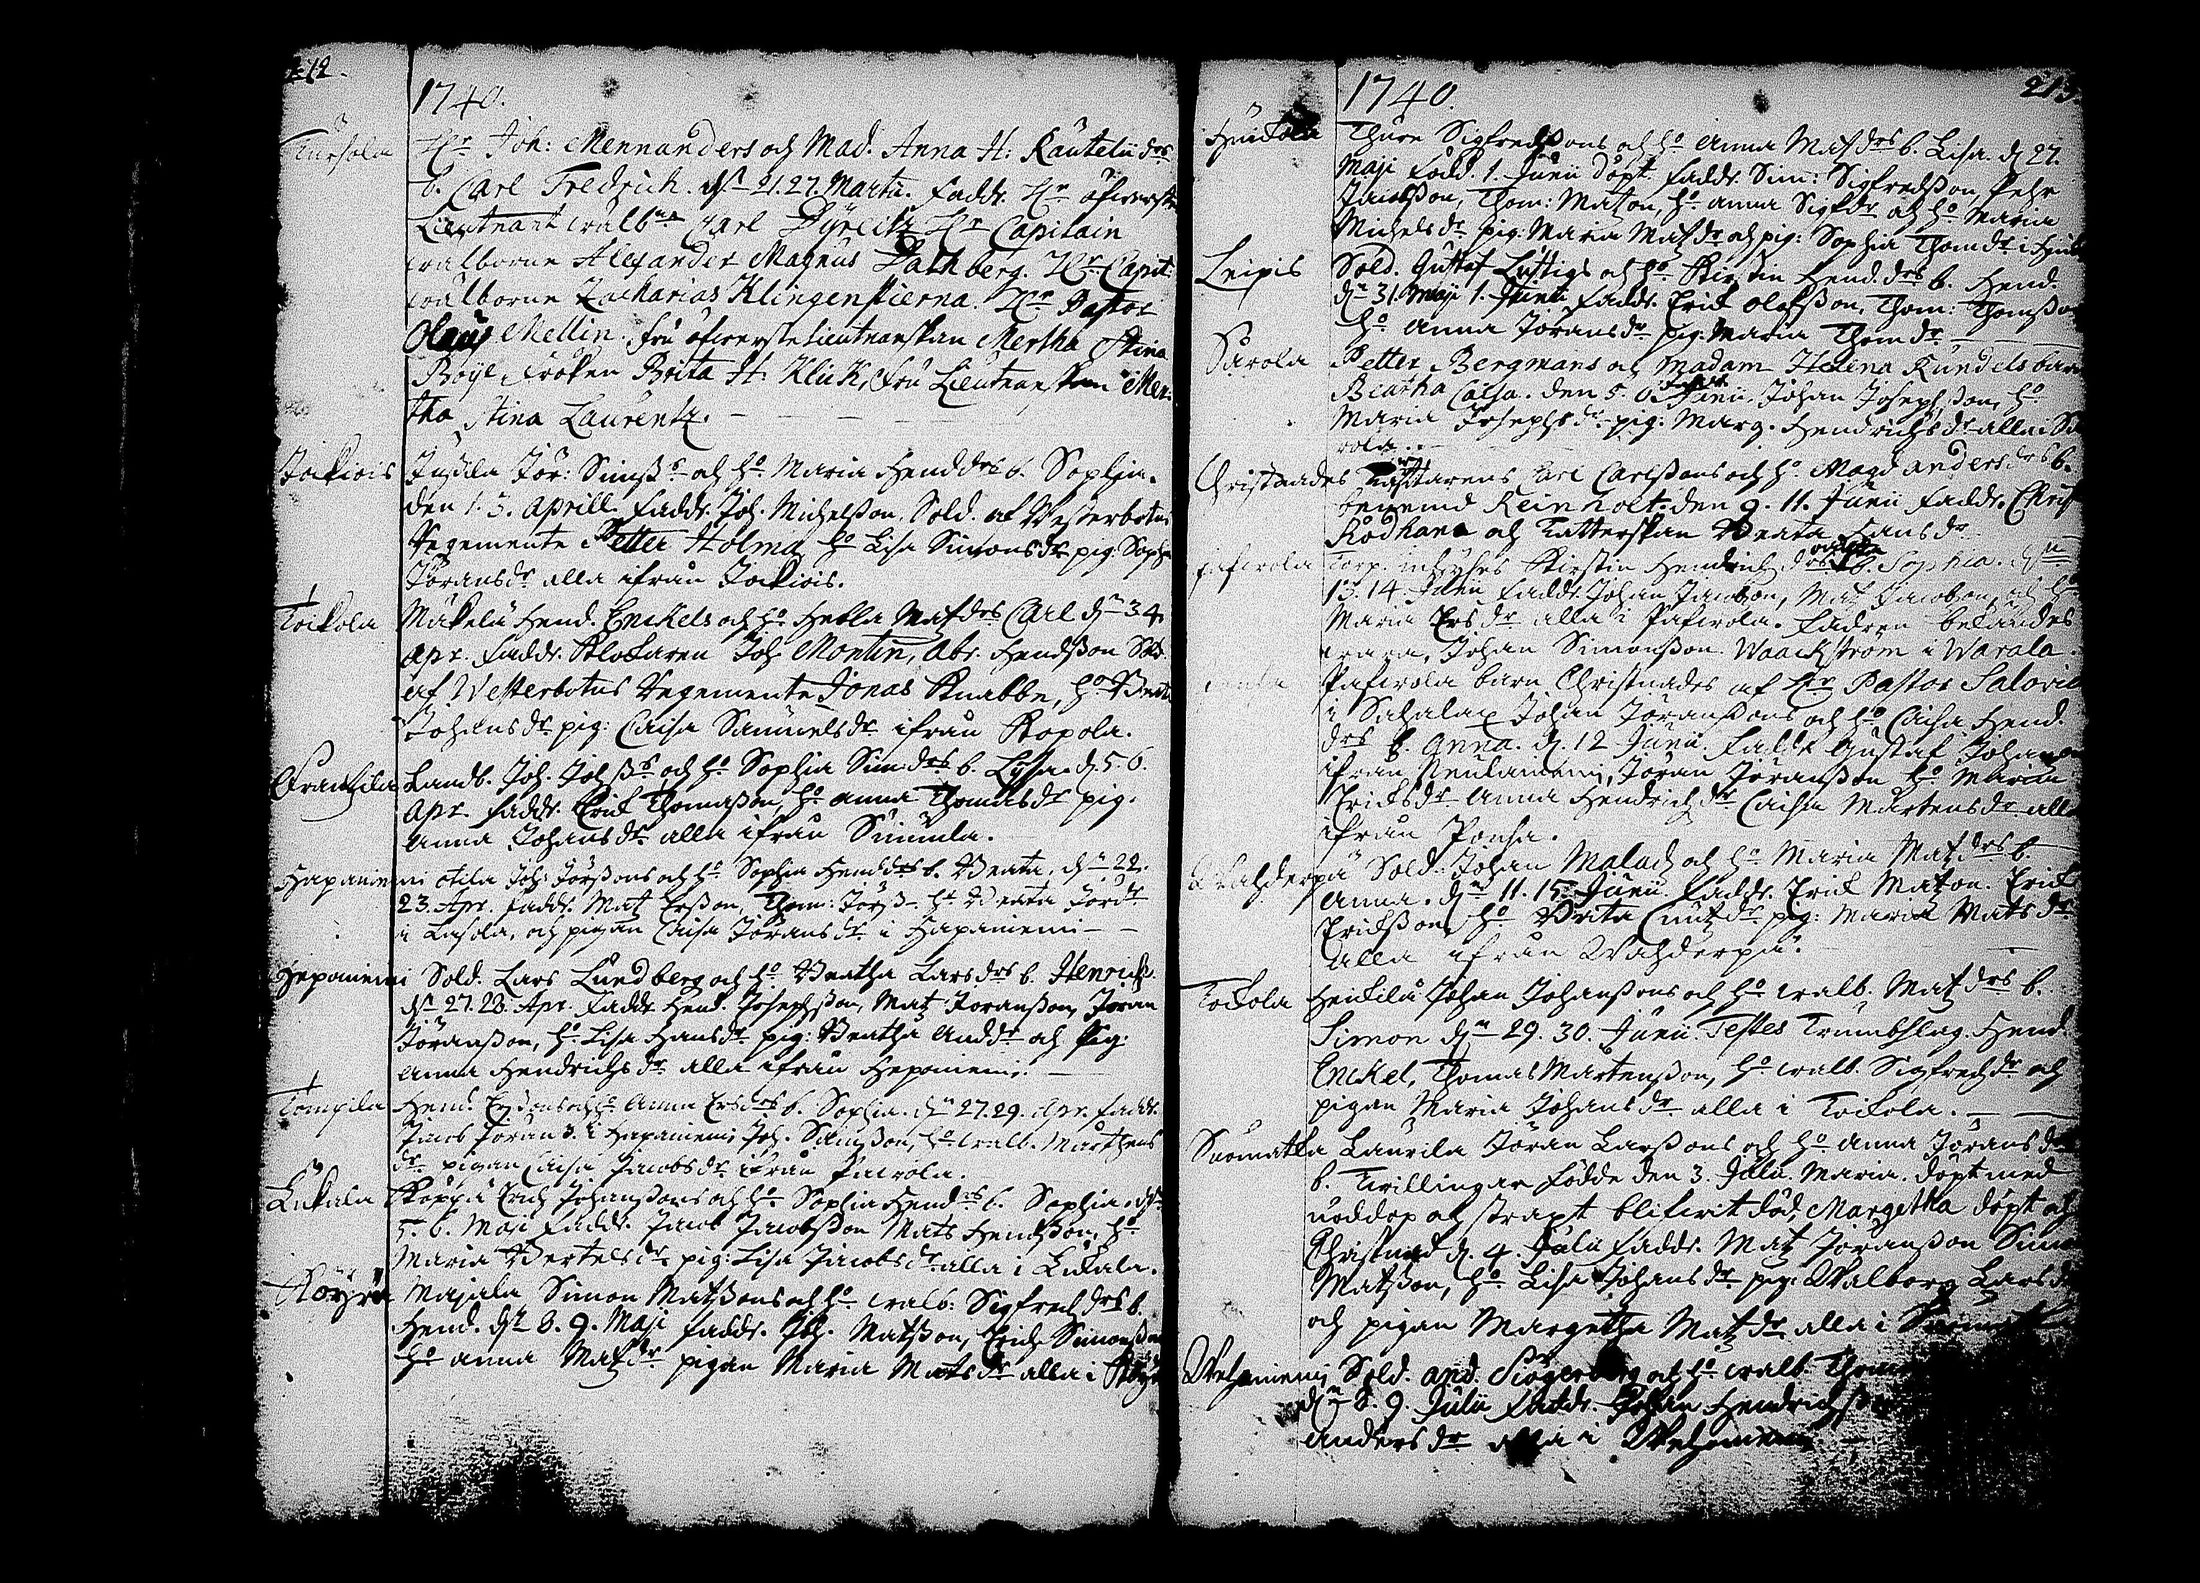 212.
1740.
Tursola Hr Joh: Mennanders och Mad. Anna H: Rautelii drs
b. Carl Fredrich. dn 21.27. Martii. Faddr. Hr öfwerste
Lieutnant walb. Carl Hr Capitain
walborne Alexander Magnus Dahlberg. Hr Capit.
walborne Zacharias Klingenstierna. Hr Pastor
Olaus Mellin. fru öfwerste Lieutnanskan Mertha Stina
Boÿe, fröken Brita H: Klick, fru Lieutnanskan Mer-
tha Stina Laurentz.
Jockiois Jör: Simß. och ho Maria Hend drs b. Sophia.
den 1. 3. Aprill. Faddr. Joh. Michelßon, Sold. af Westerbotns
Regemente Petter Holma, ho Lisa Simons dr pig: Sophia
Jörans dr alla ifrån Jockiois.
Toickola Mäkelä Hend. Enckels och ho Hebla Matz drs Carl dn 3.4.
Apr. Faddr. Klockaren Joh. Montin, Abr. Hendßon Sold.
af Westerbotns Regemente Jonas Knabbe, ho Beata
Johans dr pig: Caisa Samuels dr ifrån Kopola.
Frantzila Landb. Joh. Johß. och ho Sophia Sim drs b. Lisa. d. 5. 6.
Apr. Faddr. Erick Thomaßon, ho Anna Thomas dr pig.
Anna Johans dr alla ifrån Simula.
Hapaniemi Joh: Jörßons och ho Sophia Hend drs b. Beata. dn 22.
23. Apr. Faddr. Matz Erßon, Thom: Jörß- ho Beata Jör dr
i Lasola, och pigan Caisa Jörans dr i Hapaniemi
Hepomiemi Sold. Lars Lundberg och ho Beatha Lars drs b. Henrich
dn 27.28. Apr. Faddr. Hend. Josephßon, Matz Joranßon, Joran
Jöranßon, ho Lisa Hans dr pig: Beatha And dr och Pig:
Anna Hendrichs dr alla ifrån Hepomiemi.
Tompila Hend. Erßons och ho Anna Ers drs b. Sophia. dn 27.29. Apr. Faddr.
Jacob Jöran ß. i Hapaniemi, Joh. Samßon, ho walb. Mårthens
dr pigan Caisa Jacobs dr ifrån Pairola.
Lukala Koppa Erich Johanßons och ho Sophia Hend drs b. Sophia. dn
5. 6. Maji Faddr. Jacob Jacobßon Mats Hendßon, ho
Maria Bertels dr pig: Lisa Jacobs dr alla i Lukala.
Röyrä Majala Simon Matßons och ho walb: Sigfred drs b.
Hend. dn 8. 9. Maji Faddr. Joh. Matßon, Erich Simonßon
ho Anna Matz dr pigan Maria Mats dr alla i
213
1740.
Huickola Thure Sigfredßons och ho Anna Matz drs b. Lisa. d 27.
Maji Född. 1. Junii döpt. Faddr. Sim: Sigfredßon, Pehr
Jacobßon, Thom: Matzon, ho Anna Sigf dr och ho Maria
Michels dr pig. Maria Matz dr och pig: Sophia Thom dr i
Leipis Sold. Gustaf Lustigs och ho Kirstin Hend. drs b. Hend.
dn 31. Maji 1. Junii Faddr. Erick Olofßon, Thom: Thomßon
ho Anna Jörans dr pig. Maria Thom dr
Särola Petter Bergmans och Madam Helena Kundels barn
Beatha Caisa. den 5. 6. Junii. Johan Josephßon, ho
Maria Josephs dr pig: Marg. Hendrichs dr alla i Sä
rola.
Christnades Carl Carlßons och ho Magd Anders drs b.
benemd Reinholt. den 9. 11. Junii Faddr. Christ
Rödhana och Tatterskan Beata Hans dr
Paferola Torp. inhyses Kirstin Hendrich drs b. Sophia. dn
13. 14. Junii Faddr. Johan Jacobßon, Matz Jacobßon, och ho
Maria Ers dr alla i Paferola. Fadren bekändes
wara, Johan Simonßon Waackström i Warala.
Paferola barn Christnades af Hr Pastor Salovius
i Sahalax Johan Joranßons och ho Caisa Hend.
drs b. Anna. d. 12 Junii. Faddr Gustaf Johanßon
ifrån Jöran Jöranßon ho Maria
Ericks dr Anna Hendrich dr Caisa Mårtens dr alla
ifrån Ponsa.
Wahderpä Sold. Johan Malach och ho Maria Matz drs b.
Anna. dn 11. 15. Junii. Faddr. Erick Matzon. Erick
Erickßon, ho Brita Cnutz dr pig: Maria Mats dr
alla ifrån Wahderpä.
Toickola Heickilä Johan Johanßons och ho walb. Matz drs b.
Simon dn 29. 30. Junii. Testes Trumbslag. Hend.
Enckel, Thomas Mårtenßon, ho walb. Sigfred dr och
pigan Maria Johans dr alla i Toickola.
Suomatka Laurila Jöran Larßons och ho Anna Jörans drs
b. Twillingar födde den 3. Julii. Maria. döpt med
nöddop och strapt blifwit död, Margetha döpt och
Christnad d. 4. Julii Faddr. Matz Jöranßon Simon
Matßon, ho Lisa Johans dr pig: Walborg Lars dr
och pigan Margetha Matz dr alla i
Wehoniemi Sold. And. och ho walb. Thom
dn 8. 9. Julii Faddr. Johan Hendrichßon
Anders dr alla i Wehoniemi